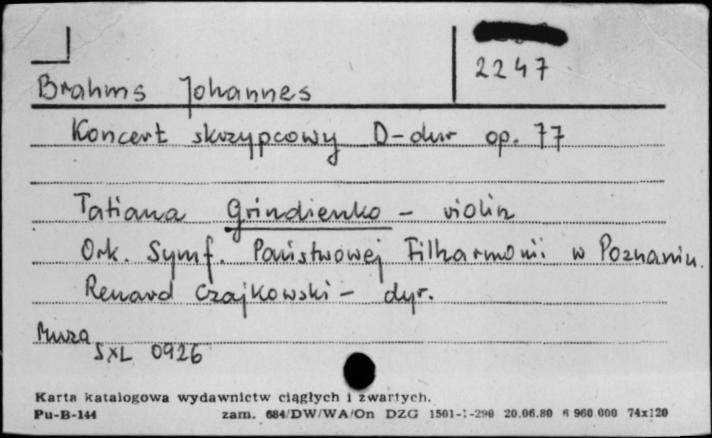 2247
Brahms Johannes
Koncert skrzypcowy D-dur op. 77
Tatiana Grindienko – violin
Ork. Symf. Państwowej Filharmonii w Poznaniu.
Renard Czajkowski – dyr.
Muza
SXL 0926
Karta katalogowa wydawnictw ciągłych i zwartych.
Pu-B-144 zam. 684/DW/WA/On DZG 1501-1-290 20.06.80 6 960 000 74x120